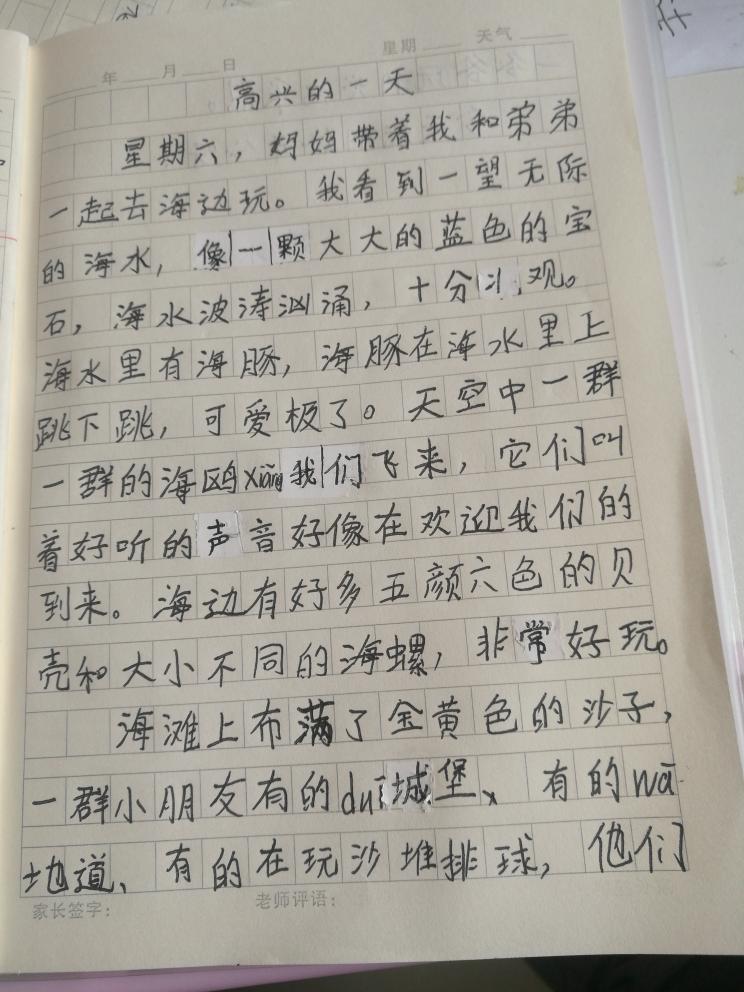 年 月 日 星期 天气
高兴的一天
星期六，妈妈带着我和弟弟
一起去海边玩。我看到一望无际
的海水，像一颗大大的蓝色的宝
石，海水波涛汹涌，十分观。
海水里有海豚，海豚在海水里上
跳下跳，可爱极了。天空中一群
一群的海鸥xiàng我们飞来，它们叫
着好听的声音好像在欢迎我们的
到来。海边有好多五颜六色的贝
壳和大小不同的海螺，非常好玩。
海滩上布满了金黄色的沙子，
一群小朋友有的duī城堡、有的wā
地道、有的在玩沙堆排球，他们
家长签字： 老师评语：